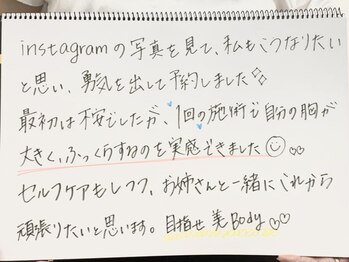 instagramの写真を見て、私もこうなりたい
と思い、勇気を出して予約しました
最初は不安でしたが、1回の施術で自分の胸が
大きく、ふっくらするのを実感できました
セルフケアもしつつ、お姉さんと一緒にこれから
頑張りたいと思います。目指せ美Body